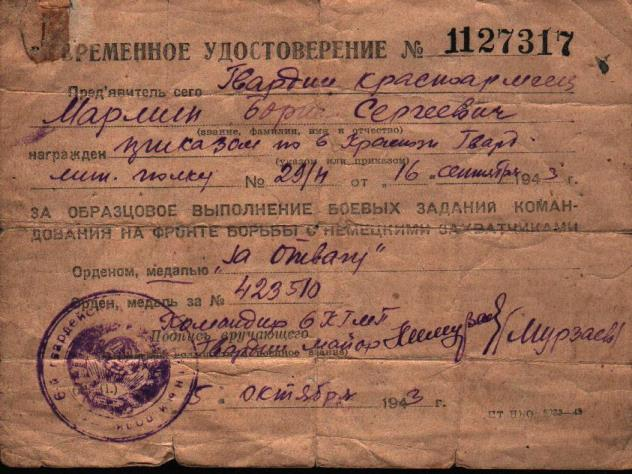 ВРЕМЕННОЕ УДОСТОВЕРЕНИЕ № 1127317
Пред'явитель сего Гвардии красноармеец
Марлин Борис Сергеевич
(звание, фамилия, имя и отчество)
награжден приказом по 6 Гвард.
(указом или приказом)
полку № 29/н от „16" сентября 1943 г.
ЗА ОБРАЗЦОВОЕ ВЫПОЛНЕНИЕ БОЕВЫХ ЗАДАНИЙ КОМАН-
ДОВАНИЯ НА ФРОНТЕ БОРЬБЫ С НЕМЕЦКИМИ ЗАХВАТЧИКАМИ
Орденом, медалью „За Отвагу"
Орден, медаль за № 423510
Командир 6
Подпись вручающего
Гвардии майор (Мурзаев)
звание)
5 " октября 1943 г.
6й гвардейск